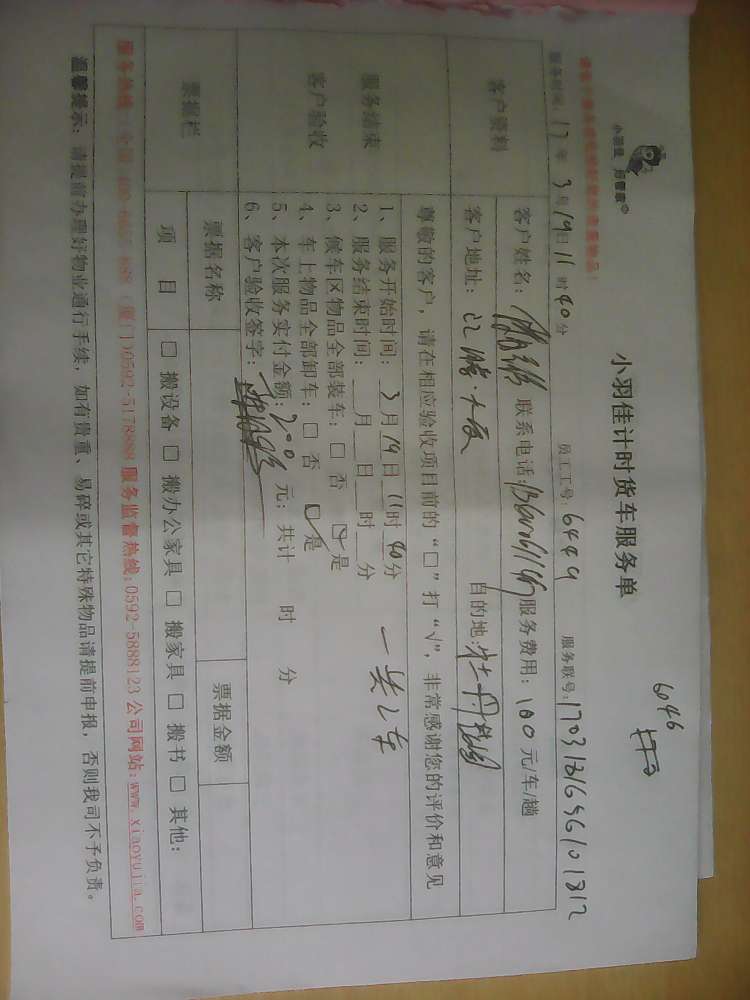 6046
小羽佳 好管家
小羽佳计时货车服务单
服务时间：17年3月19日11时40分 员工工号：6449 服务联号：
客户资料
客户姓名： 联系电话： 服务费用：100元/车/趟
客户地址： 目的地：
尊敬的客户，请在相应验收项目前的“□”打“√”，非常感谢您的评价和意见
服务结束
客户验收
1、服务开始时间：3月19日11时40分 一共2车
2、服务结束时间：__月__日__时__分
3、候车区物品全部装车：□ 否 ☑ 是
4、车上物品全部卸车：□ 否 ☑ 是
5、本次服务实付金额：200元；共计 时 分
6、客户验收签字：
票据栏
票据名称 票据金额
项 目 □ 搬设备 □ 搬办公家具 □ 搬家具 □ 搬书 □ 其他：
服务热线：全国 (厦门)0592-5178888 服务监督热线：0592-5888123 公司网站：www.xiaoyujia.com
温馨提示：请提前办理好物业通行手续，如有贵重、易碎或其它特殊物品请提前申报，否则我司不予负责。